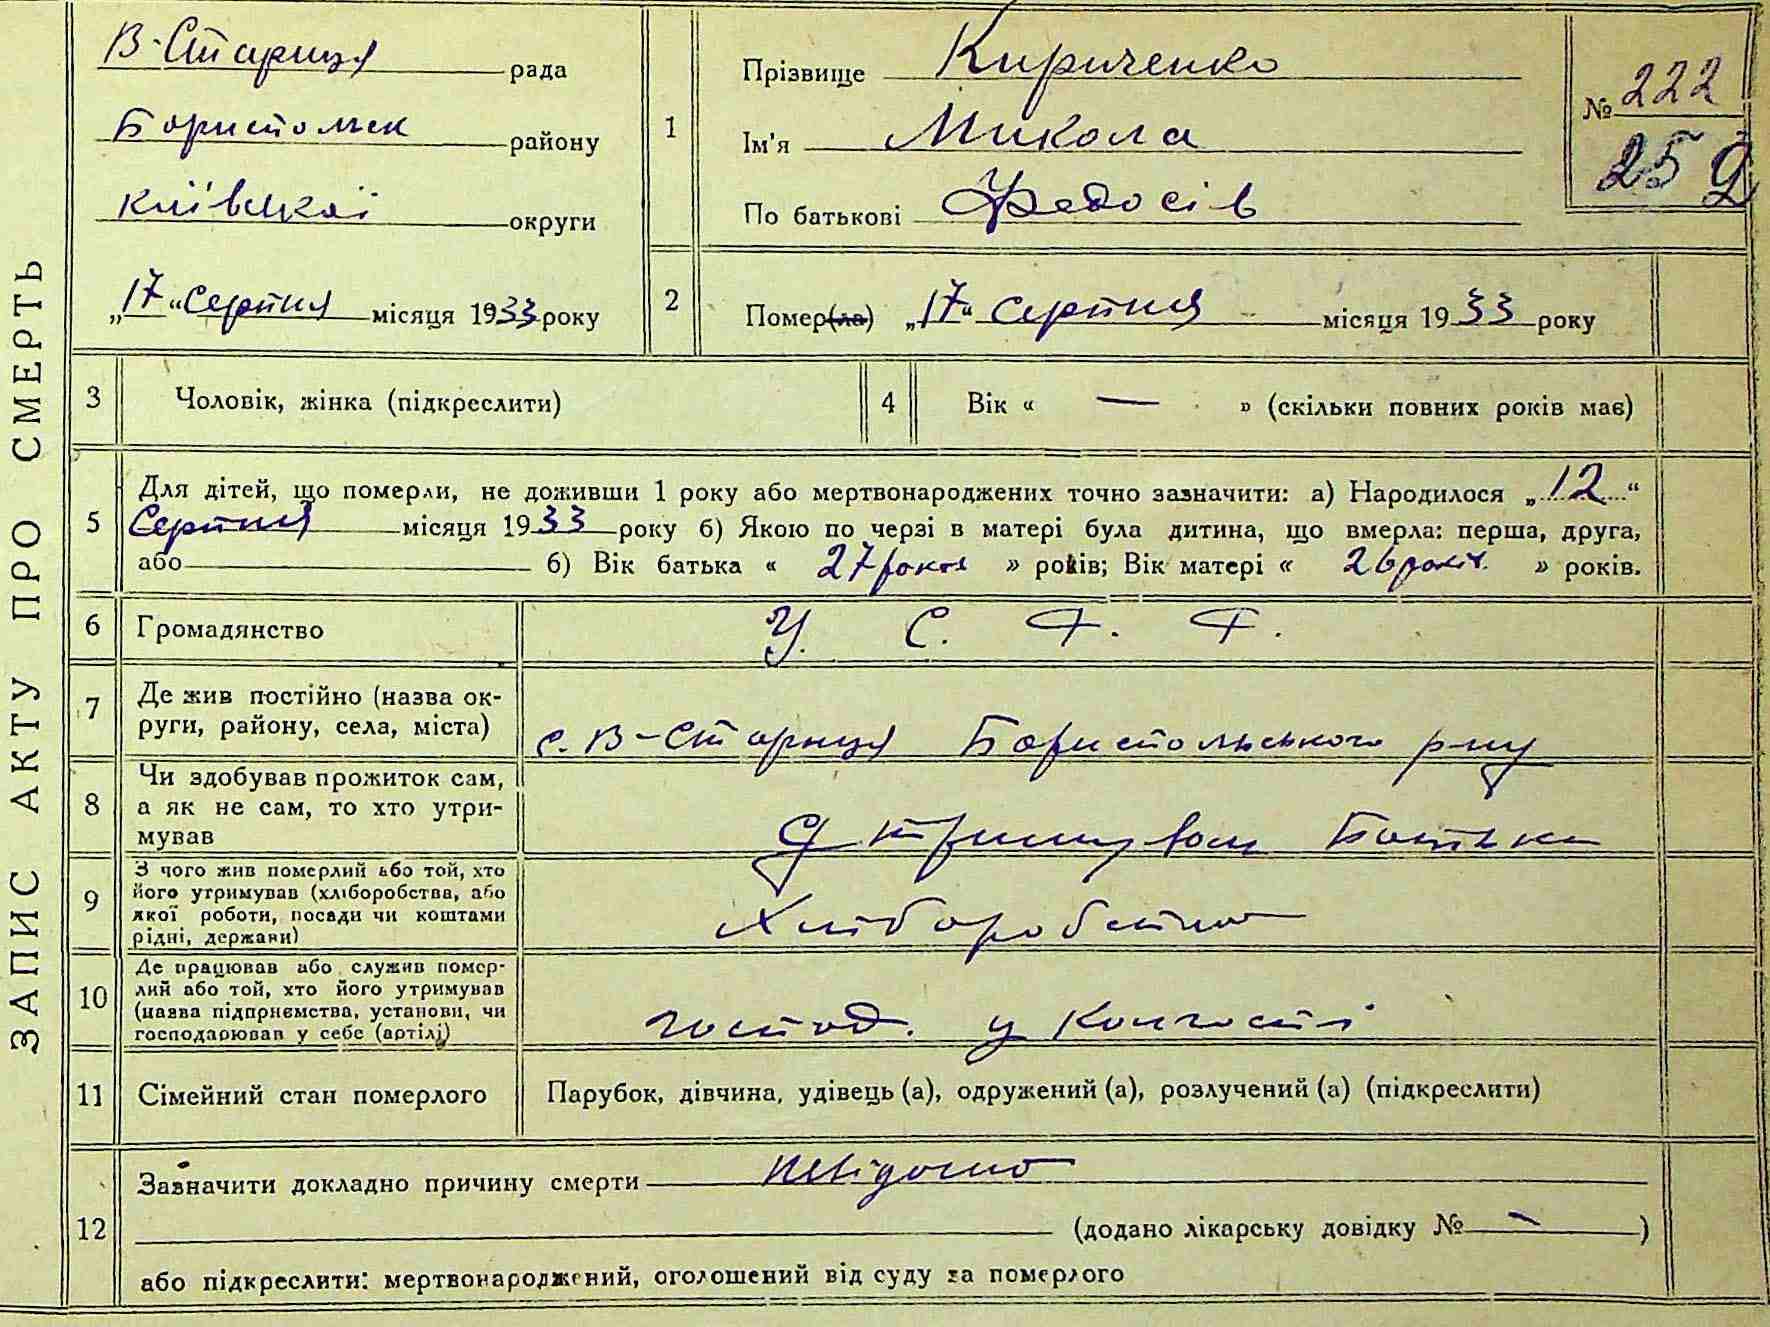 ЗАПИС АКТУ ПРО СМЕРТЬ
В-Стариця рада
Бориспольск району
київської округи
„17“ Серпня місяця 1933 року
1
Прізвище Кириченко
Ім'я Микола
По батькові Федосів
№ 222
25
2
Помер(ла) „17“ серпня місяця 1933 року
3
Чоловік, жінка (підкреслити)
4
Вік « — » (скільки повних років має)
5
Для дітей, що померли, не доживши 1 року або мертвонароджених точно зазначити: а) Народилося „12“
Серпня місяця 1933 року б) Якою по черзі в матері була дитина, що вмерла: перша, друга,
або б) Вік батька « 27 роков » років; Вік матері « 26 років. » років.
6
Громадянство
У. С. Р. Р.
7
Де жив постійно (назва ок-
руги, району, села, міста)
с. В-Стариця Бориспольського р-ну
8
Чи здобував прожиток сам,
а як не сам, то хто утри-
мував
Утримував Батько
9
З чого жив померлий або той, хто
його утримував (хліборобства, або
якої роботи, посади чи коштами
рідні, держави)
Хліборобство
10
Де працював або служив помер-
лий або той, хто його утримував
(назва підприємства, установи, чи
господарював у себе (артілі)
господ. у Колгоспі
11
Сімейний стан померлого
Парубок, дівчина, удівець (а), одружений (а), розлучений (а) (підкреслити)
12
Зазначити докладно причину смерти невідомо
(додано лікарську довідку № — )
або підкреслити: мертвонароджений, оголошений від суду за померлого